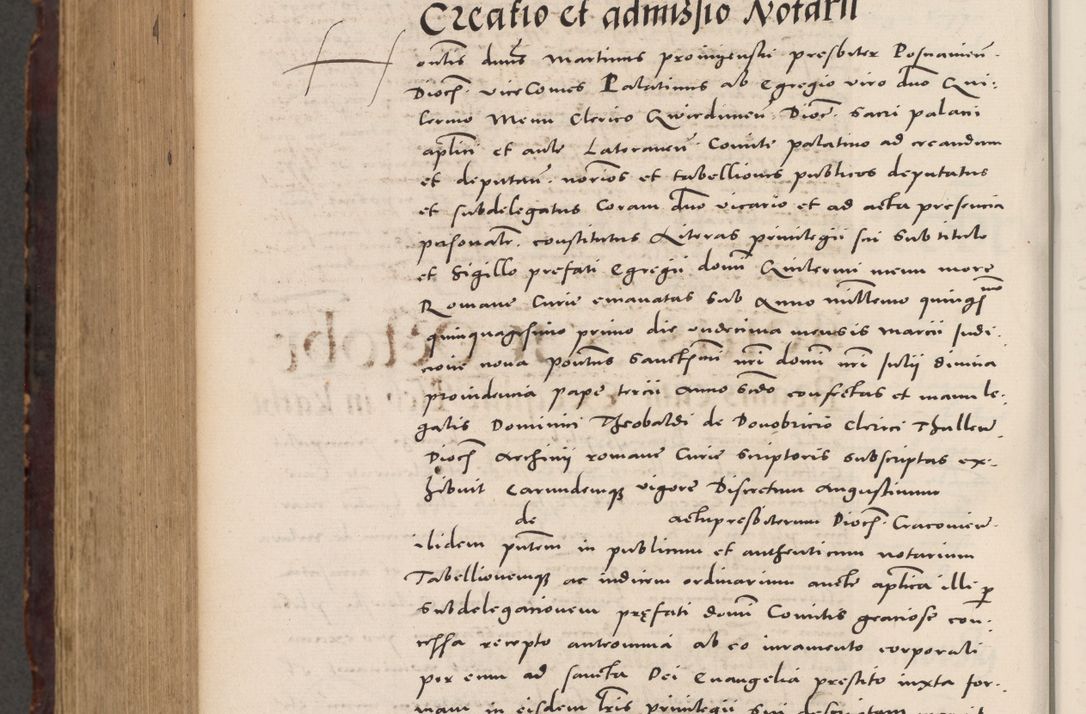 Creatio et admissio Notarii
dnus Martinus presbiter Posnanien.
Dioc. vice Comes Palatinus ab Egregio viro dno Gui-
lermo Menu Clerico Dioc. Sacri palacii
aplici et aule Lateranen. Comite palatino ad creandum
et deputan. norios et tabelliones publicos deputatus
et subdelegatus Coram dno vicario et ad acta presencia
personalr. constitutus Literas privilegii sui sub titulo
et Sigillo prefati Egregii domi Guilermi menu more
Romane Curie emanatas Sub Anno millemo quingmo
quinquagesimo primo die undecima mensis marcii Indi-
cione nona pontus Sanctissimi nri domi nri Julii divina
providencia pape tercii Anno scdo confectas et manu le-
galis Dominici Theobaldi de Clerici Thullen.
Dioc. Archivii romane Curie scriptoris subscriptas ex-
hibuit Earundemque vigore Discretum Augustinum
de presbiterum Dioc. Cracovien.
ibidem putem in publicum et authenticum notarium
Tabellionemque ac iudicem ordinarium aucte aptica illi p
Subdelegacionem prefati domi Comitis graciose con-
cessa recepto anteomnia ab eo iuramento corporali
per eum ad sancta Dei Evangelia prestito iuxta for-
mam in eisdem lris privilegii sui